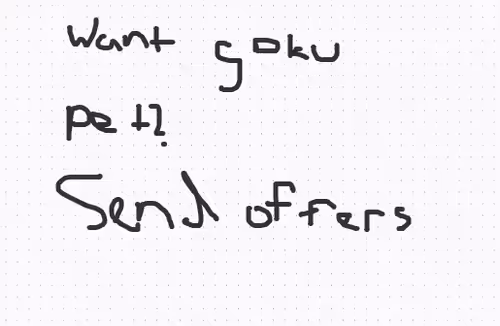 Want goku
pet?
Send offers